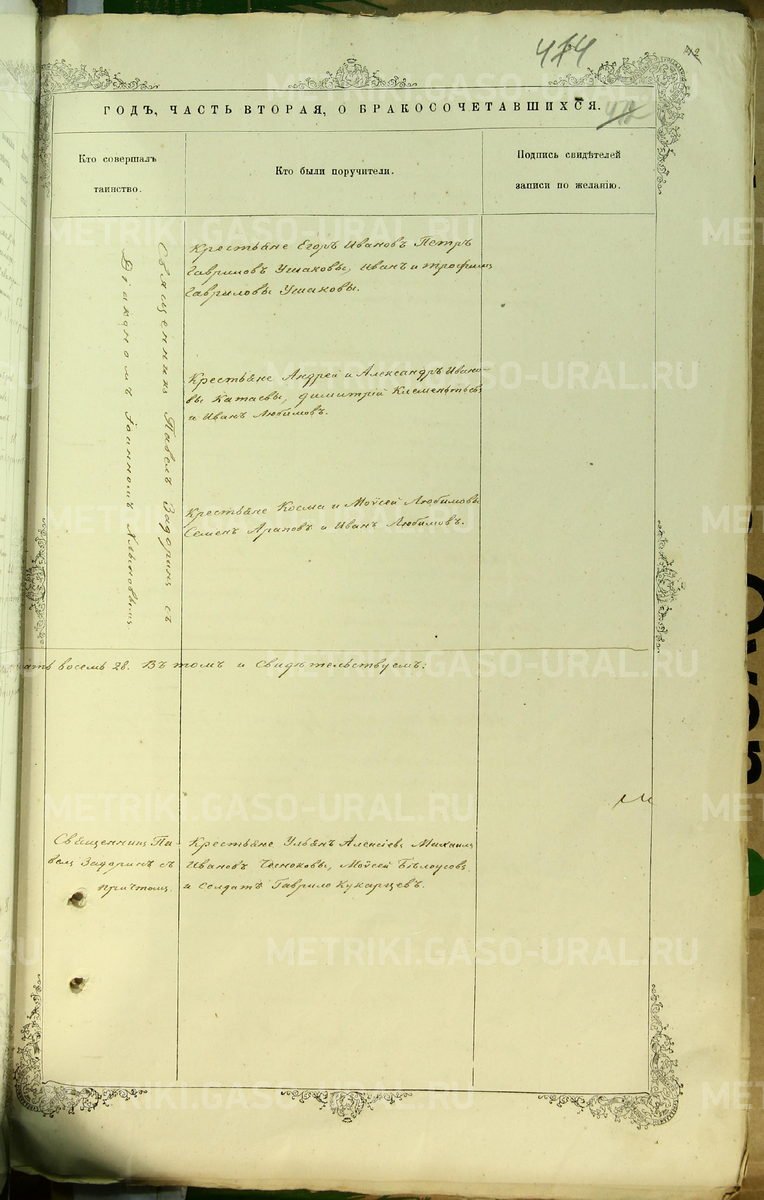 474
42
ГОДЪ, ЧАСТЬ ВТОРАЯ, О БРАКОСОЧЕТАВШИХСЯ.
Кто совершалъ
таинство.
Кто были поручители.
Подпись свидѣтелей
записи по желанію.
Священникъ Павелъ Задоринъ съ
Діакономъ Іоанномъ
Крестьяне Егоръ Ивановъ Петръ
Гавриловъ Ушаковы, Иванъ и Трофимъ
Гавриловы Ушаковы.
Крестьяне Андрей и Александръ Ивано-
вы Катаевы, Димитрій Клементьевъ
и Иванъ Любимовъ.
Крестьяне Косма и Моѵсей Любимовы
Семенъ Араповъ и Иванъ Любимовъ.
восемь 28. Въ томъ и Свидѣтельствуемъ:
Священникъ Па-
велъ Задоринъ съ
причтомъ.
Крестьяне Ульянъ Алексѣевъ, Михаилъ
Ивановъ Чесноковы, Моѵсей Бѣлоусовъ
и солдатъ Гаврило Кукарцевъ.
METRIKI.GASO-URAL.RU